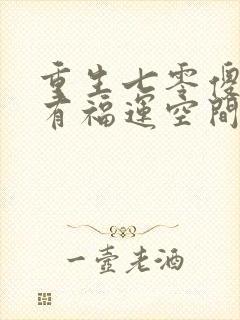 重生七零傻
有福運空間
一壺老酒